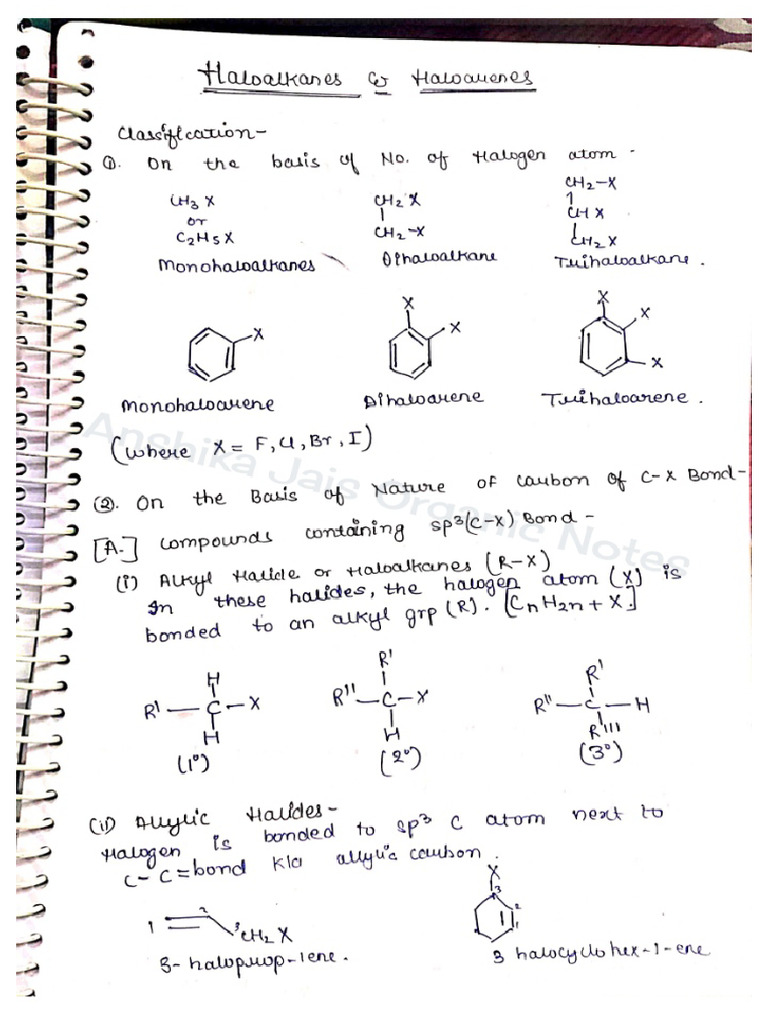 Haloalkanes & Haloarenes
Classification-
①. On the basis of No. of Halogen atom -
CH3 X
or
C2H5 X
Monohaloalkanes
CH2 X
CH2 -X
Dihaloalkane
CH2-X
CH X
CH2X
Trihaloalkane.
X
Monohaloarene
X
X
Dihaloarene
X
X
X
Trihaloarene.
(where X = F, Cl, Br, I)
②. On the Basis of Nature of Carbon of C-X Bond-
[A.] Compounds containing sp³(C-X) Bond -
(i) Alkyl Halide or Haloalkanes (R-X)
In these halides, the halogen atom (X) is
bonded to an alkyl grp (R). [CnH2n + X]
R' — C — X
H
H
(1°)
R'
R'' — C — X
H
(2°)
R'
R'' — C — H
R'''
(3°)
(ii) Allylic Halides-
Halogen is bonded to sp³ C atom next to
C-C=bond K/a allylic carbon.
1
2
3
CH2 X
3- haloprop-1ene.
X
3
2
1
3 halocyclohex-1-ene
Anshika Jais Organic Notes